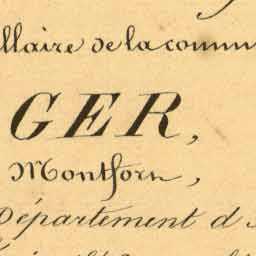 llaire de la commu
GER,
Montforn,
Département d